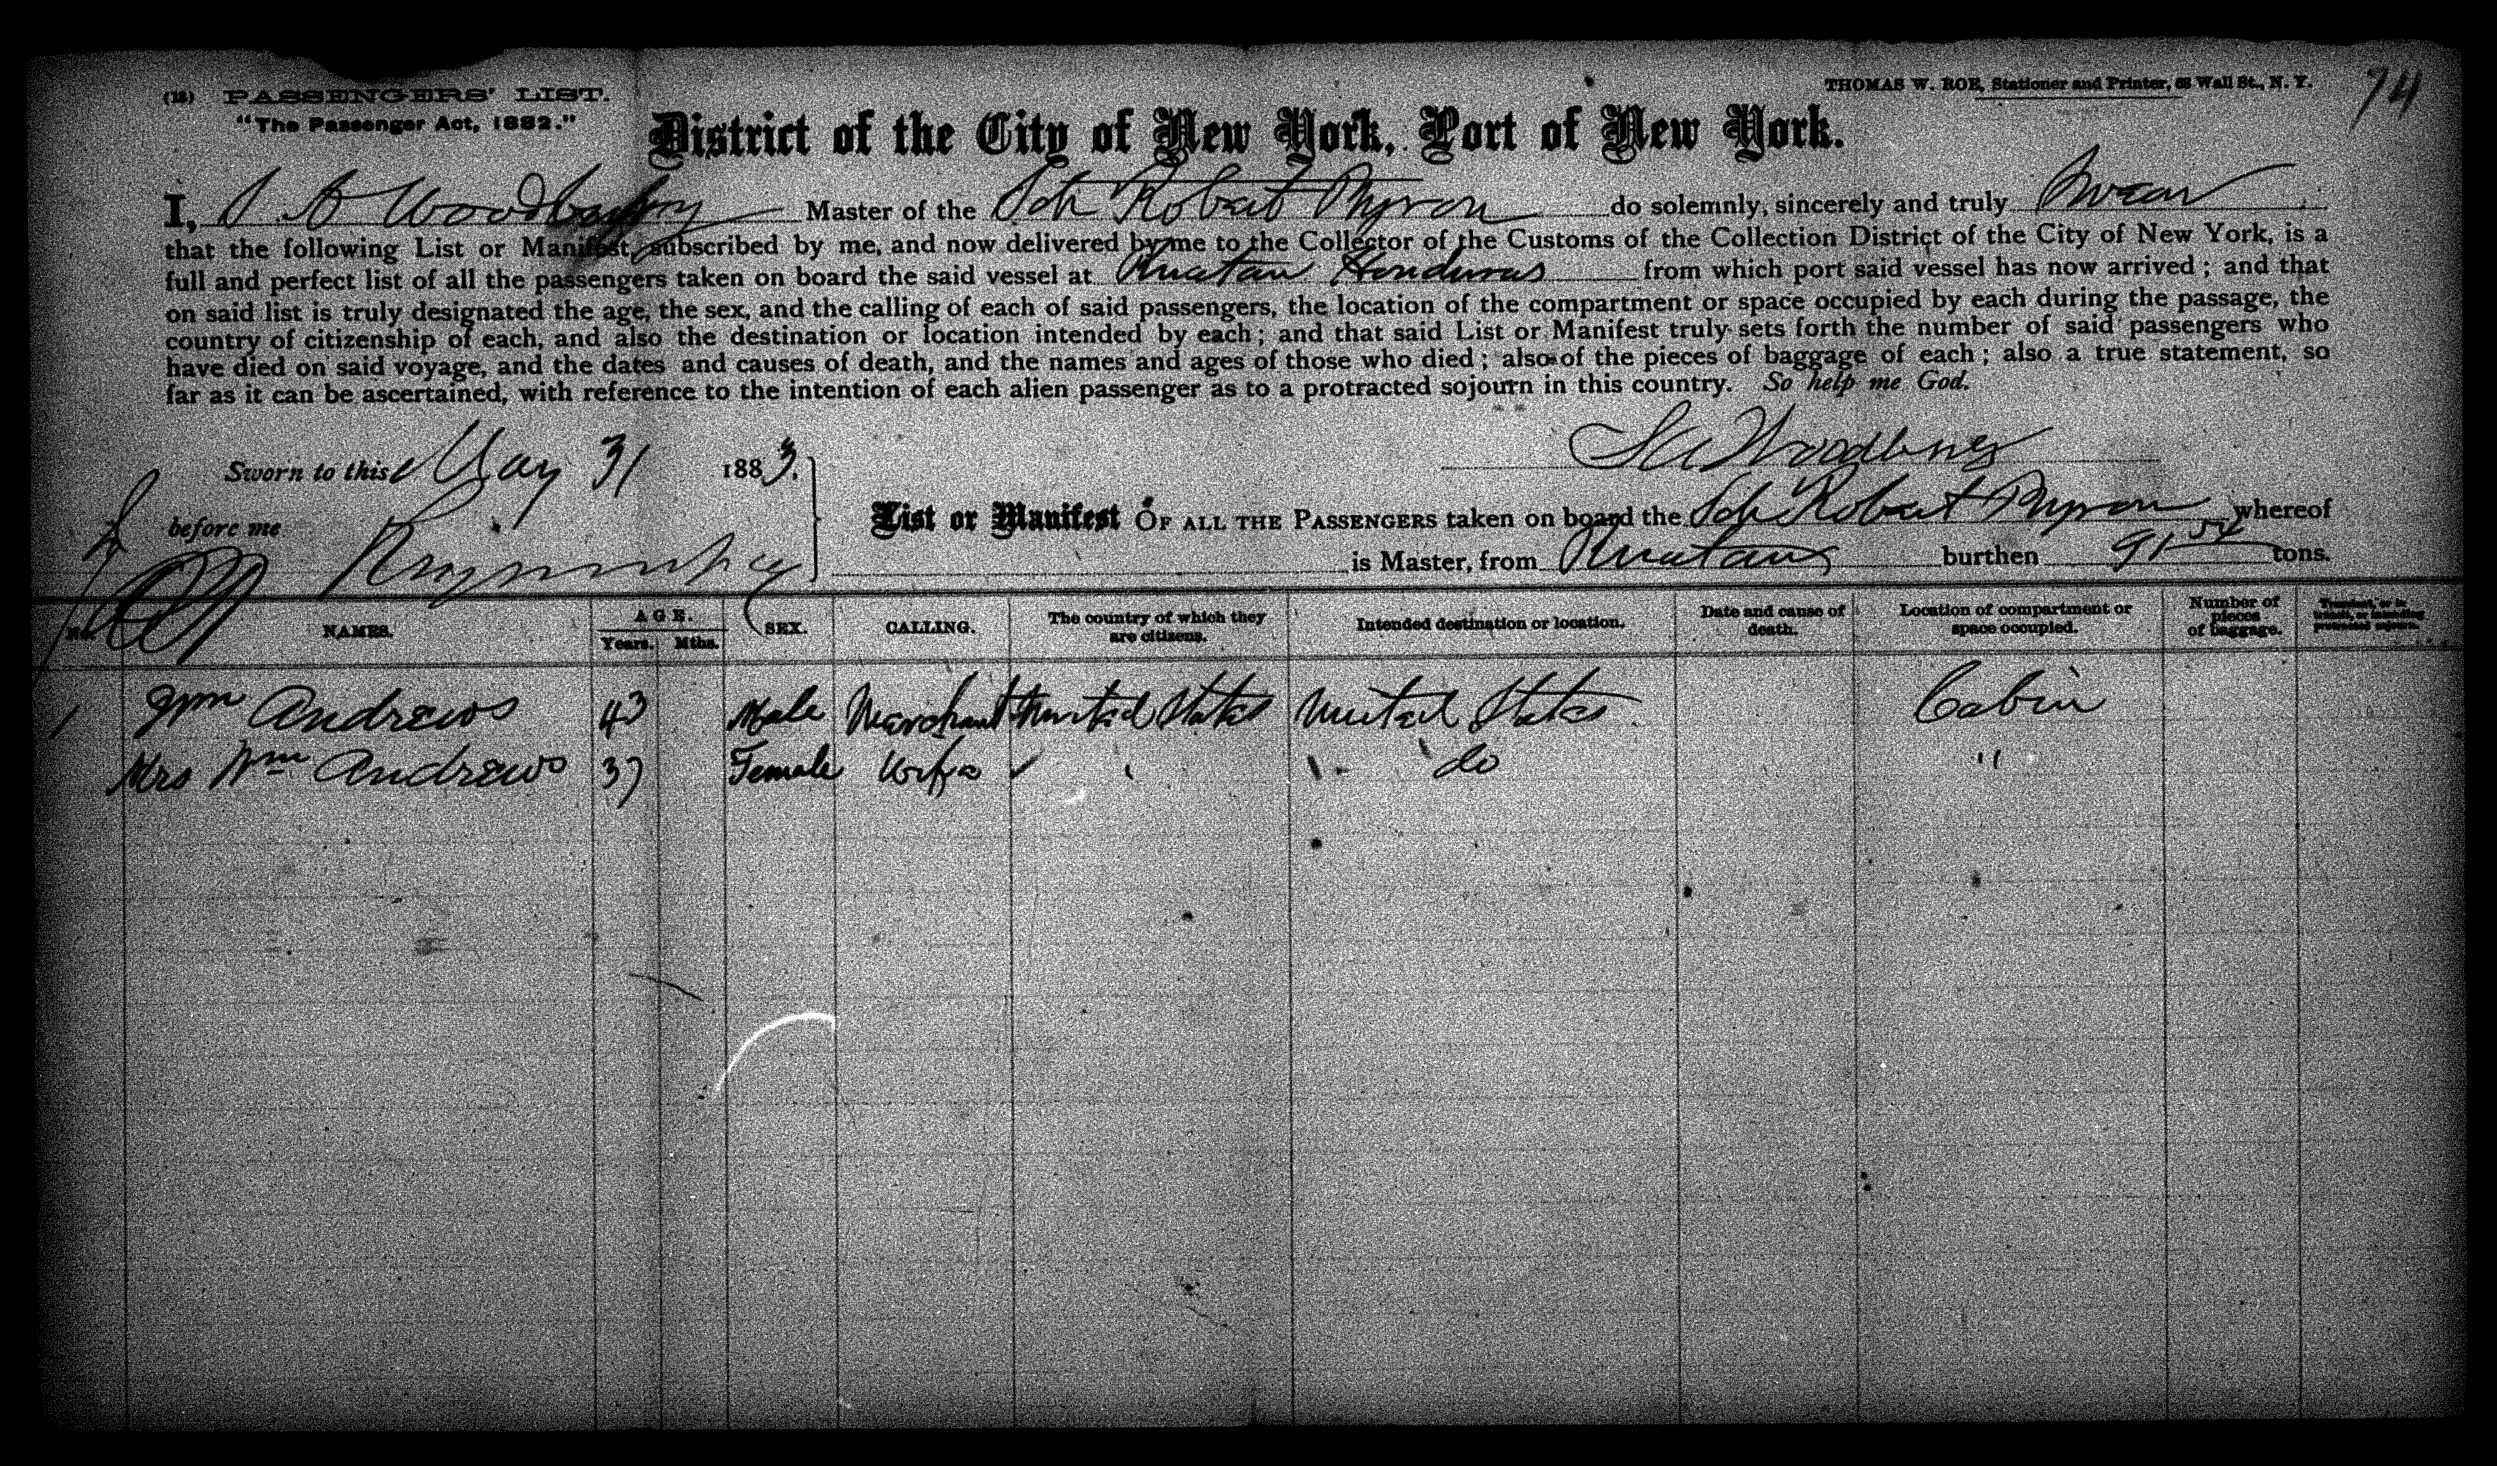 (18) PASSENGERS' LIST.
"The Passenger Act, 1882."
THOMAS W. ROE, Stationer and Printer, Wall St., N. Y.
74
District of the City of New York, Port of New York.
I, Woodbury Master of the Sch Robert Myron do solemnly, sincerely and truly Swear
that the following List or Manifest, subscribed by me, and now delivered by me to the Collector of the Customs of the Collection District of the City of New York, is a
full and perfect list of all the passengers taken on board the said vessel at Ruatan Honduras from which port said vessel has now arrived; and that
on said list is truly designated the age, the sex, and the calling of each of said passengers, the location of the compartment or space occupied by each during the passage, the
country of citizenship of each, and also the destination or location intended by each; and that said List or Manifest truly sets forth the number of said passengers who
have died on said voyage, and the dates and causes of death, and the names and ages of those who died; also of the pieces of baggage of each; also a true statement, so
far as it can be ascertained, with reference to the intention of each alien passenger as to a protracted sojourn in this country. So help me God.
Woodbury
Sworn to this May 31 1883.
before me
List or Manifest OF ALL THE PASSENGERS taken on board the Sch Robert Myron whereof
is Master, from Ruatan burthen 91 tons.
No. NAMES. AGE. Years. Mths. SEX. CALLING. The country of which they are citizens. Intended destination or location. Date and cause of death. Location of compartment or space occupied. Number of pieces of baggage.
1 Wm Andrews 43 Male Merchant United States United States Cabin
Mrs Wm Andrews 37 Female Wife do "